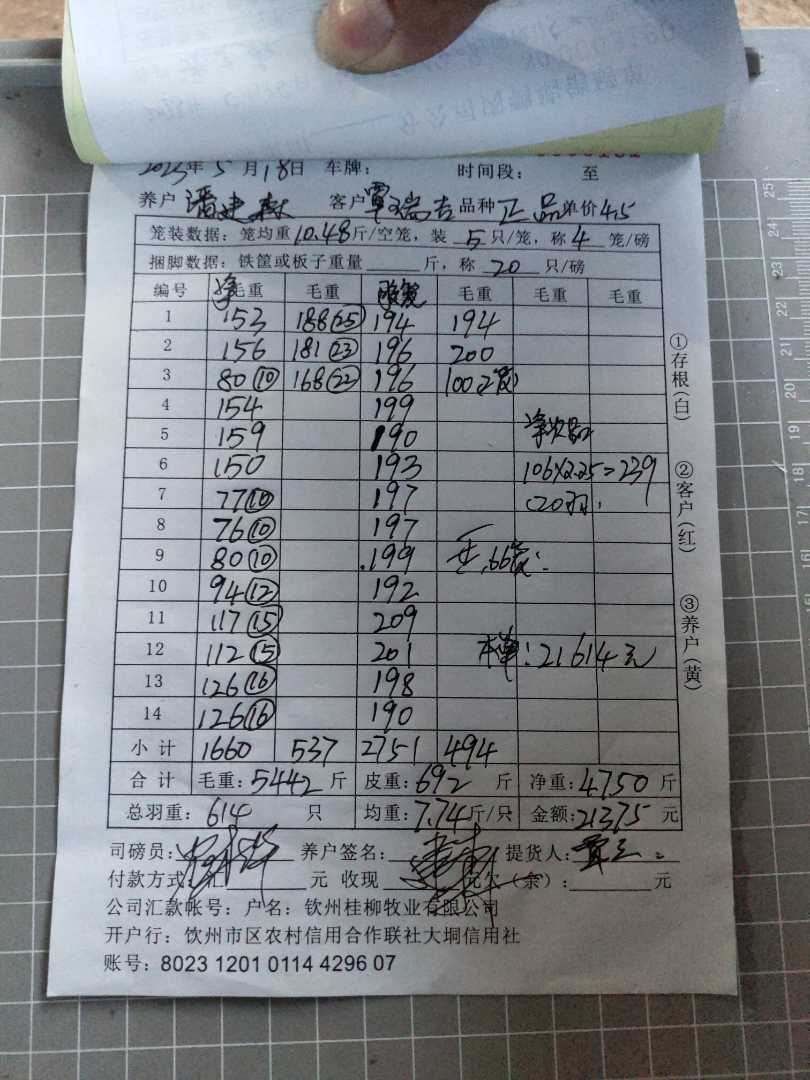 2023年5月18日 车牌： 时间段： 至
养户 潘建森 客户 覃瑞吉 品种 正品 单价4.5
笼装数据：笼均重10.48斤/空笼，装 5 只/笼，称 4 笼/磅
捆脚数据：铁筐或板子重量 斤，称 20 只/磅
编号 净毛重 毛重 毛重 毛重 毛重
1 153 188(25) 194 194
2 156 181(23) 196 200
3 80(10) 168(22) 196 100(2笼)
4 154 199
5 159 190
6 150 193 106×2.25=239
7 77(10) 197 (20羽)
8 76(10) 197
9 80(10) 199 66笼
10 94(12) 192
11 117(15) 209
12 112(15) 201 本单：21614元
13 126(16) 198
14 126(16) 190
小计 1660 537 2751 494
合计 毛重：5442 斤 皮重：692 斤 净重：4750 斤
总羽重：614 只 均重：7.74斤/只 金额：21375 元
司磅员： 养户签名： 提货人：
付款方式：汇 元 收现 元欠（余）： 元
公司汇款帐号：户名：钦州桂柳牧业有限公司
开户行：饮州市区农村信用合作联社大垌信用社
账号：8023 1201 0114 4296 07
①存根(白)
②客户(红)
③养户(黄)